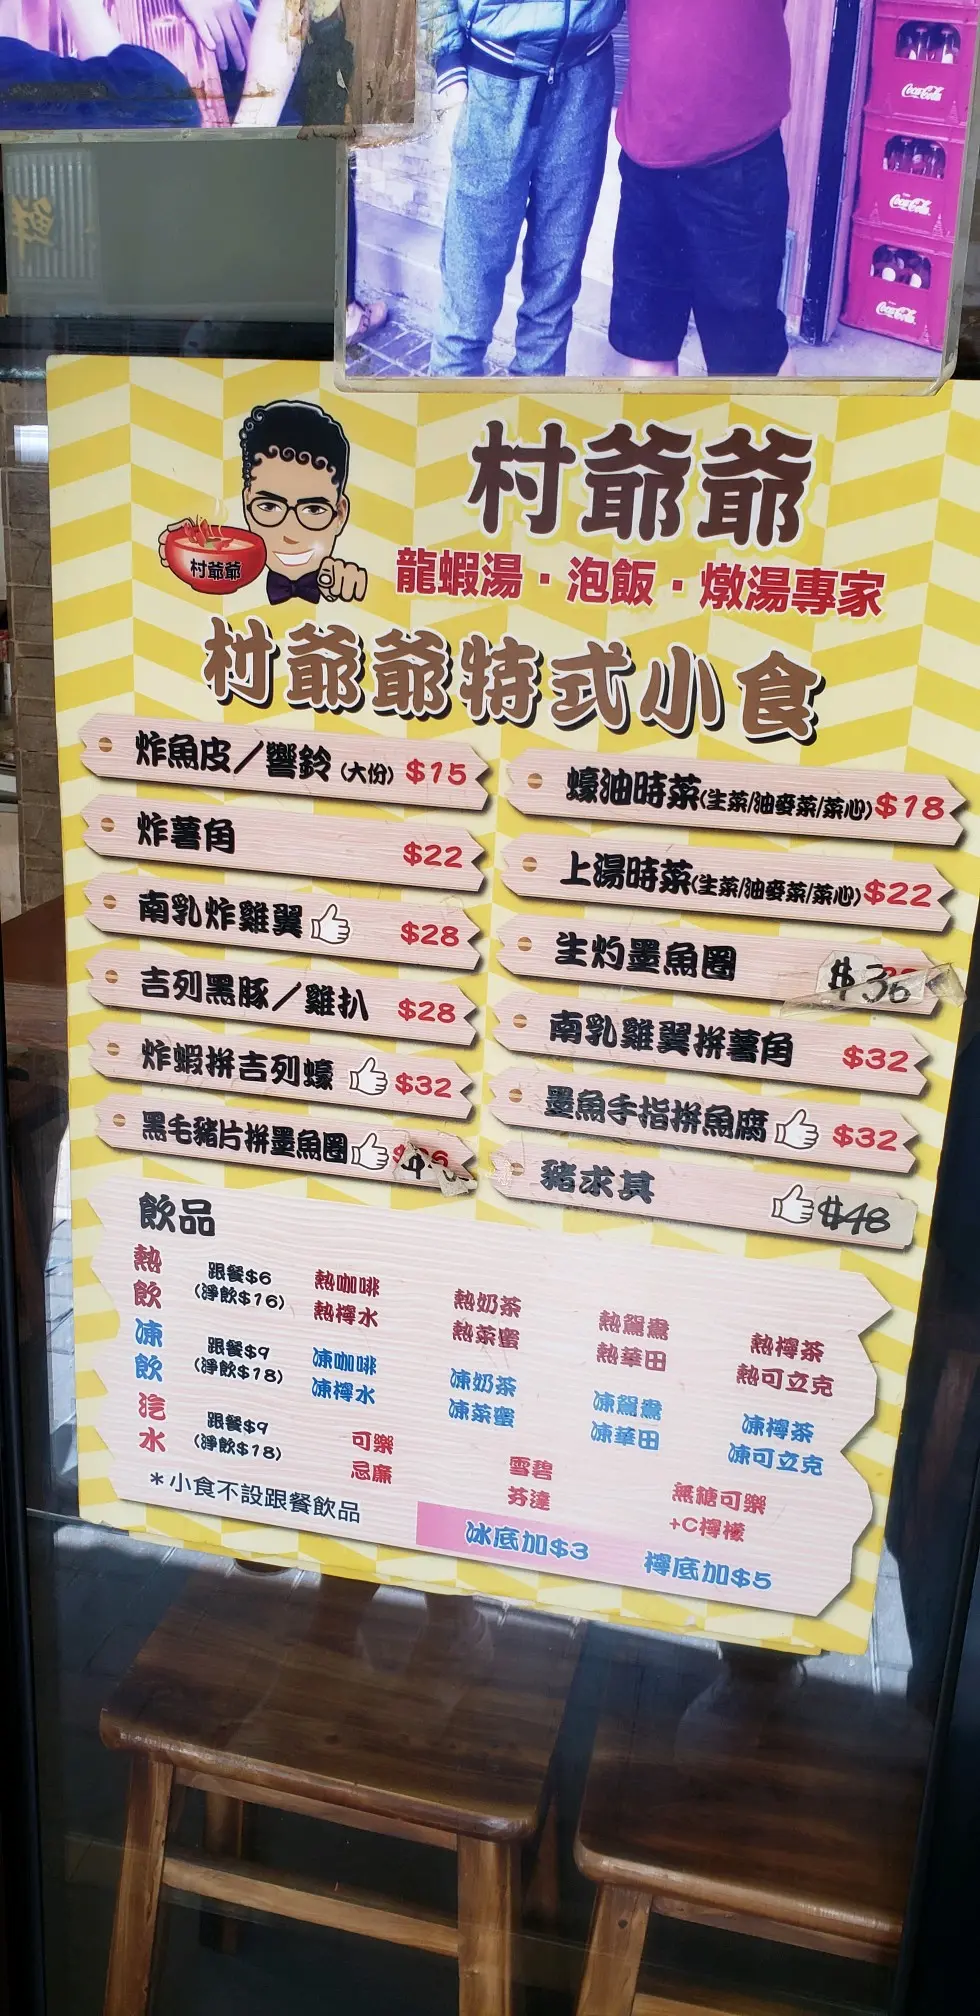 Coca-Cola
Coca-Cola
Coca-Cola
鮮
村爺爺
村爺爺
龍蝦湯・泡飯・燉湯專家
村爺爺特式小食
炸魚皮／響鈴(大份) $15
炸薯角 $22
南乳炸雞翼 $28
吉列黑豚／雞扒 $28
炸蝦拼吉列蠔 $32
黑毛豬片拼墨魚圈
蠔油時菜(生菜/油麥菜/菜心) $18
上湯時菜(生菜/油麥菜/菜心) $22
生灼墨魚圈 $36
南乳雞翼拼薯角 $32
墨魚手指拼魚腐 $32
豬求其 $48
飲品
熱飲 跟餐$6 (淨飲$16)
熱咖啡 熱奶茶 熱鴛鴦 熱檸茶
熱檸水 熱菜蜜 熱華田 熱可立克
凍飲 跟餐$9 (淨飲$18)
凍咖啡 凍奶茶 凍鴛鴦 凍檸茶
凍檸水 凍菜蜜 凍華田 凍可立克
汽水 跟餐$9 (淨飲$18)
可樂 雪碧 無糖可樂
忌廉 芬達 +C檸檬
＊小食不設跟餐飲品
冰底加$3 檸底加$5